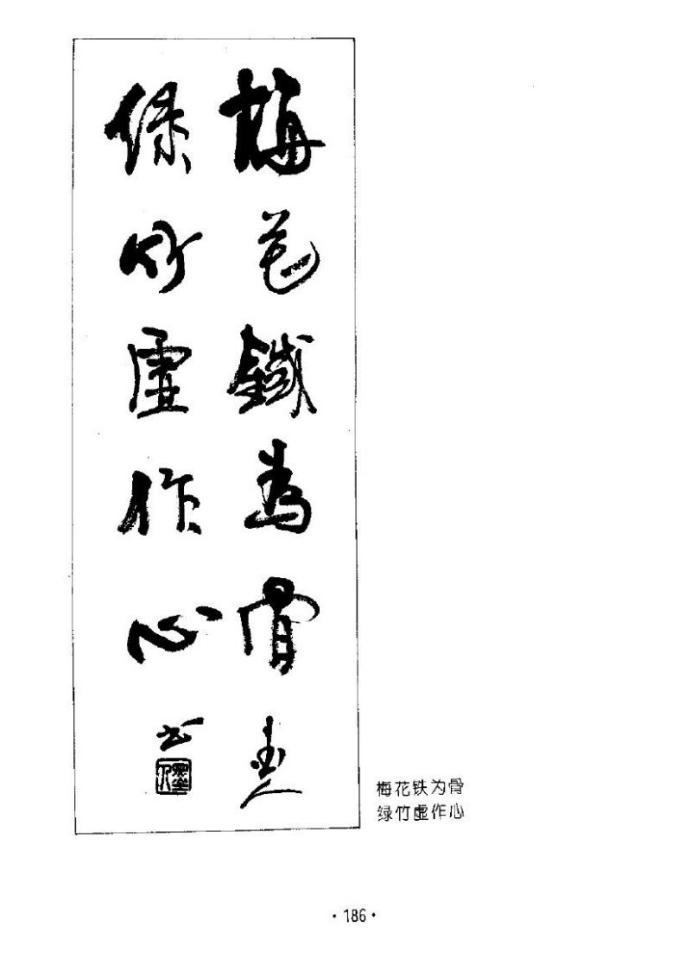 梅花鐵為骨
綠竹虛作心
書
梅花铁为骨
绿竹虚作心
·186·